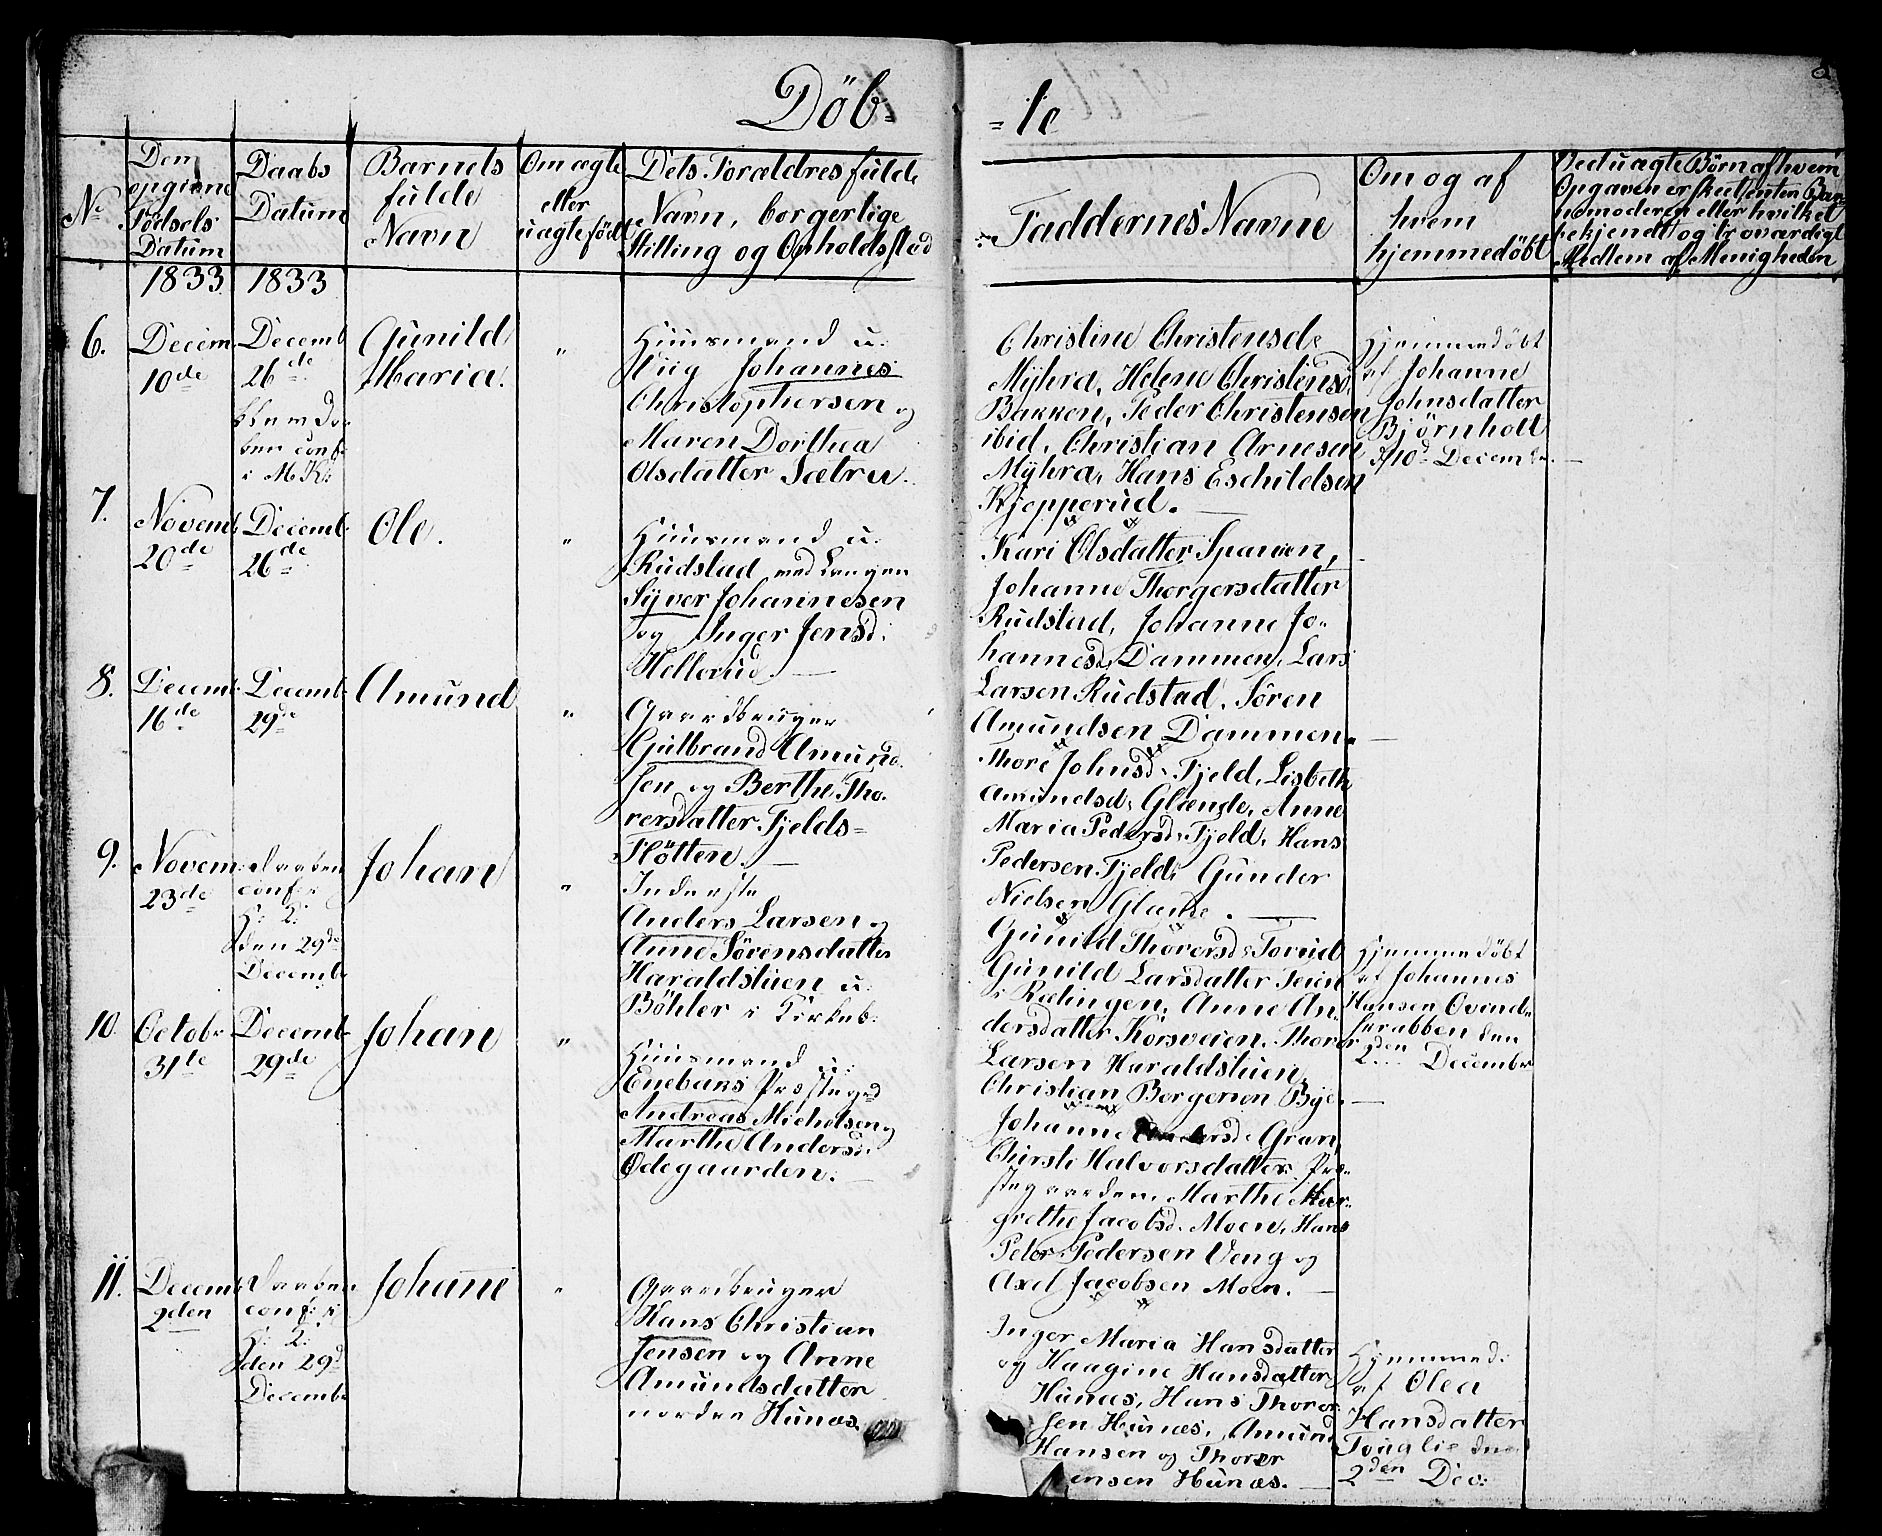 Döb-
-te
No
Den
opgivne
Födsels
Datum
Daabs
Datum
Barnets
fulde
Navn
Om ægte
eller
uægte födt
Dets Forældres fulde
Navn, borgerlige
Stilling og Opholdsstad
Faddernes Navne
Om og af
hvem
hjemmedöbt
Ved uægte Börn af hvem
Opgaven er skeet, enten Bar-
nemoderen eller hvilket
bekjendt og troværdigt
Medlem af Menigheden
1833
1833
6.
Decem
10de
Decemb
26de
i M K:
Gunild
Maria.
"
Huusmand u:
Johannes
Christophersen og
Maren Dorthea
Olsdatter Sætra.
Christine Christensd:
Myhra, Helene Christensd,
Bakken, Peder Christensen
ibid, Christian Arnesen
Myhra, Hans Eschildsen
Kjepperud.
Hjemmedöbt
af Johanne
Johnsdatter
Björnholt
d 10d Decembr.
7.
Novemb
20de
Decemb
26de
Ole.
"
Huusmand u:
Rudstad med Leugen
Syver Johannesen
og Inger Jensd:
Hellerud.
Kari Olsdatter Spanien,
Johanne Thorgersdatter
Rudstad, Johanne Jo-
hannesd, Dammen, Lars
Larsen Rudstad, Sören
Amundsen Dammen.
8.
Decemb
16de
Decemb
29de
Amund
"
Gaardbruger
Gulbrand Amund
sen og Berthe Tho-
rersdatter Fjelds-
Slötten.
Thore Johnsd: Fjeld, Lisbeth
Amundsd: Glænde, Anne
Maria Pedersd: Fjeld, Hans
Pedersen Fjeld, Gunder
Nielsen Glænde.
9.
Novem:
23de
Daaben
conf: i
H: 2:
den 29de
Decembr
Johan
"
Inderste
Anders Larsen og
Anne Sörensdatter
Haraldstuen u:
Böhler i Kirkeb:
Gunild Thorersd: Forud
Gunild Larsdatter Teien
i Rælingen, Anne An-
dersdatter Korsveien, Thorer
Larsen Haraldstuen,
Christian Borgersen Bye.
Hjemmedöbt
af Johannes
Hansen Ovenbr
skrubben den
2den Decembr
10.
Octobr
31te
Decemb
29de
Johan
"
Huusmand u:
Enebaks Præsteged
Andreas Michelsen og
Marthe Andersd:
Ödegaarden.
Johanne Andersd: Gran,
Chirsti Halvorsdatter Præ-
stegaarden, Marthe Mar-
grethe Jacobsd. Moen, Hans
Peter Pedersen Veng og
Axel Jacobsen Moen.
11.
Decemb
2den
Daaben
conf: i
H: 2:
den 29d
Decembr
Johanne
"
Gaardbruger
Hans Christian
Jensen og Anne
Amundsdatter
nordre Hunæs.
Inger Maria Hansdatter
og Haagine Hansdatter
Hunæs, Hans Thorer
sen Hunæs, Amund
Hansen og Thorer
Jensen Hunæs.
Hjemmed:
af Olea
Hansdatter
Fouglie den
2den Dec: